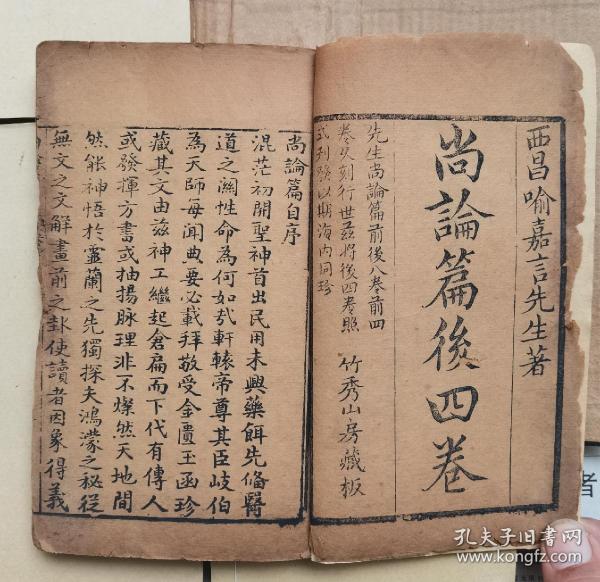 西昌喻嘉言先生著
尚論篇後四卷
先生尚論篇前後八卷前四
卷久刻行世茲將後四卷照
式刊發以期海内同珍
竹秀山房藏板
尚論篇自序
混茫初開聖神首出民用未興藥餌先偹醫
道之關性命為何如㢤軒轅帝尊其臣岐伯
為天師每聞典要必載拜敬受金匱玉函珍
藏其文由兹神工繼起倉扁而下代有傳人
或發揮方書或抽揚脉理非不燦然天地間
然能神悟於靈蘭之先獨探夫鴻濛之秘從
無文之文解畫前之卦使讀者因象得義
者
孔夫子旧书网
www.kongfz.com